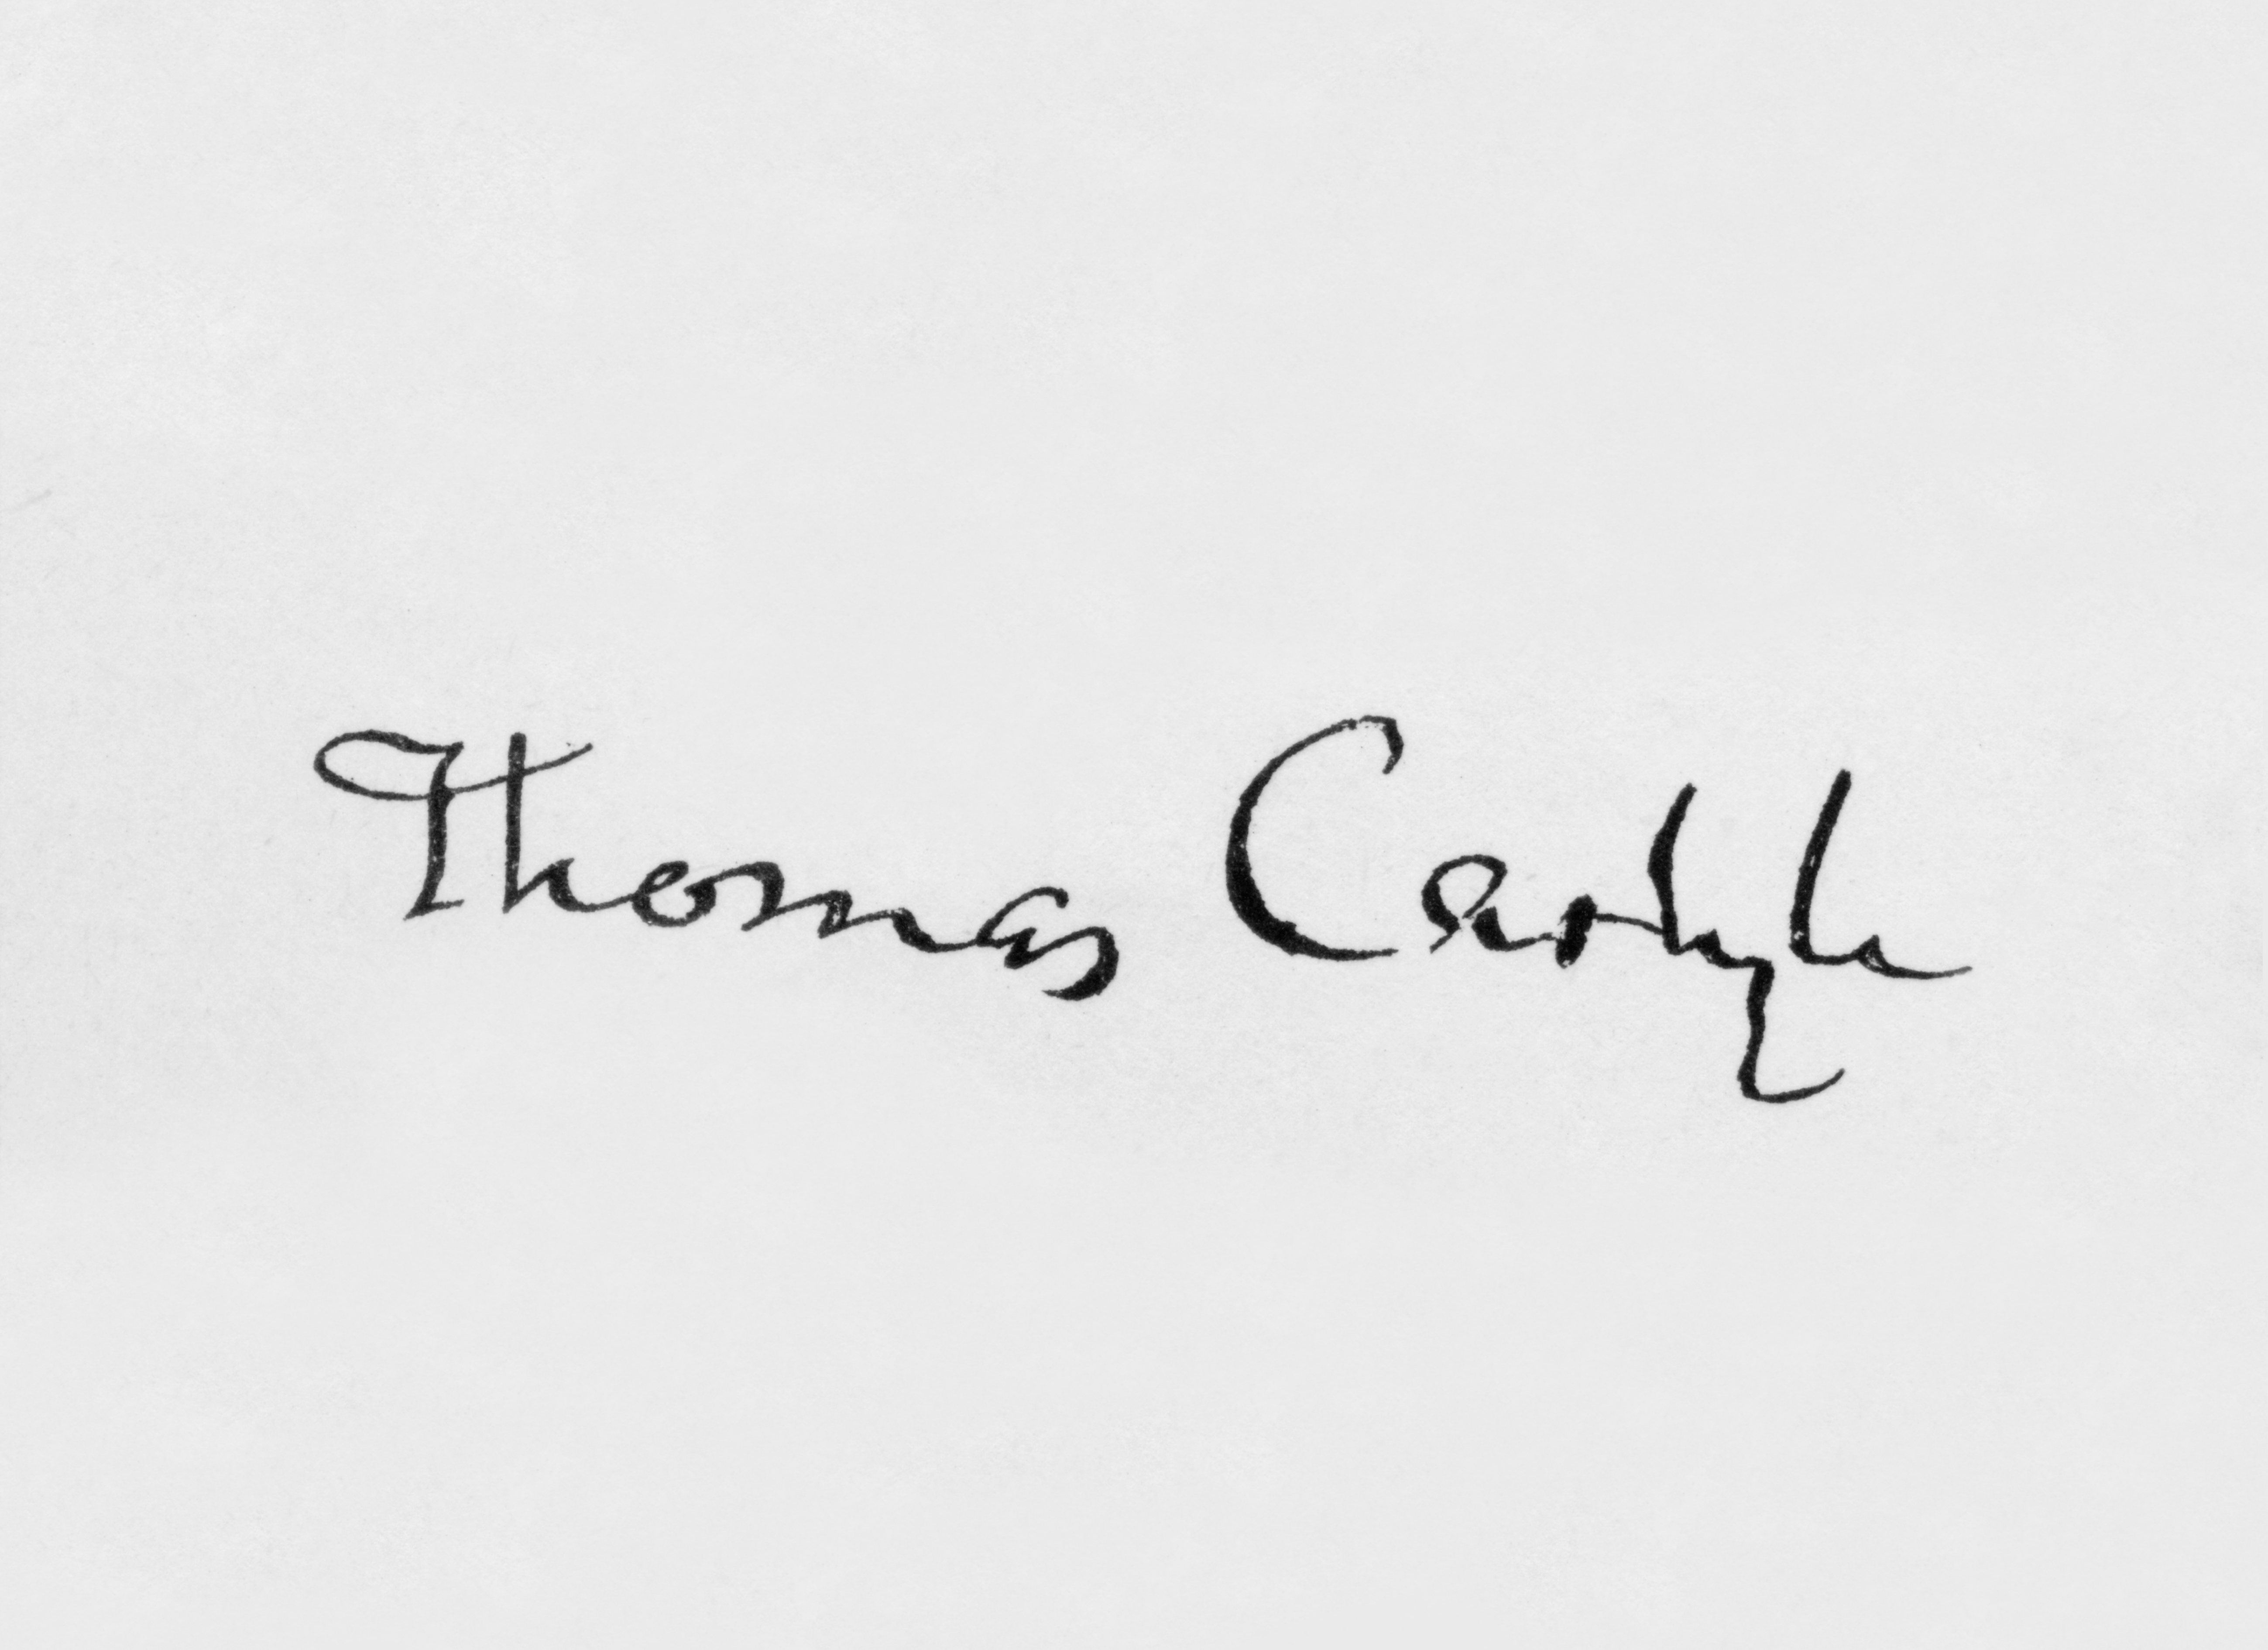 Thomas Carlyle